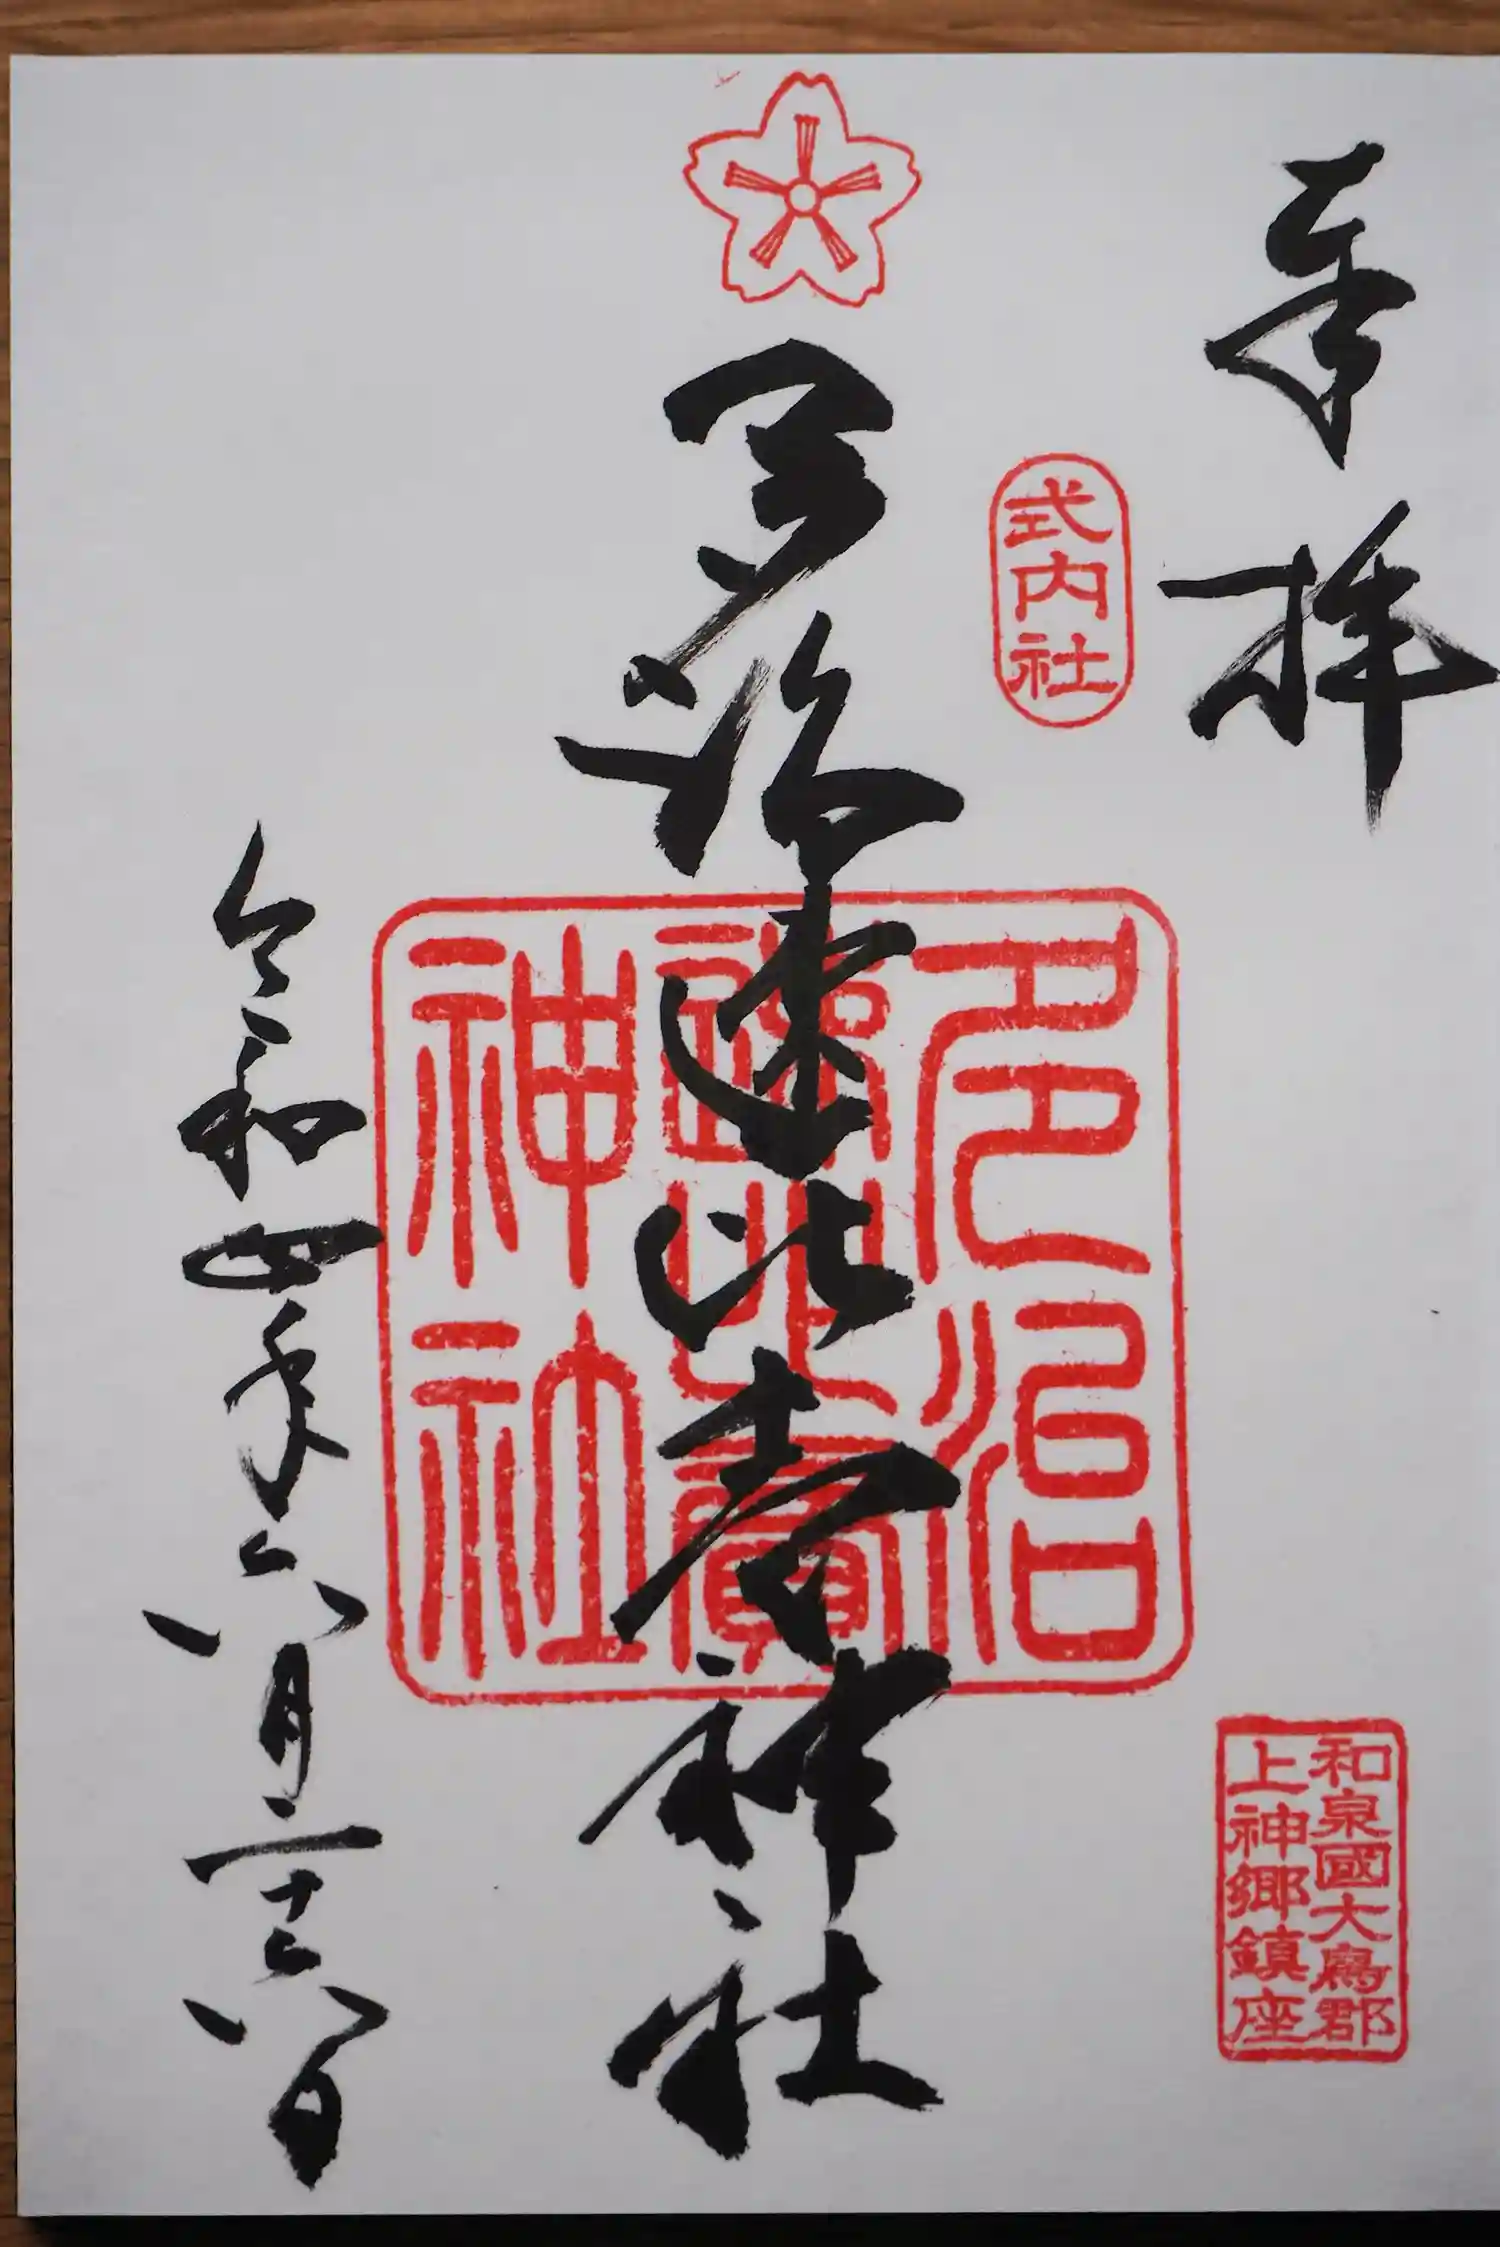 奉拝
式内社
多治速比売神社
多治
速比賣
神社
和泉國大鳥郡
上神郷鎮座
令和四年六月二十六日